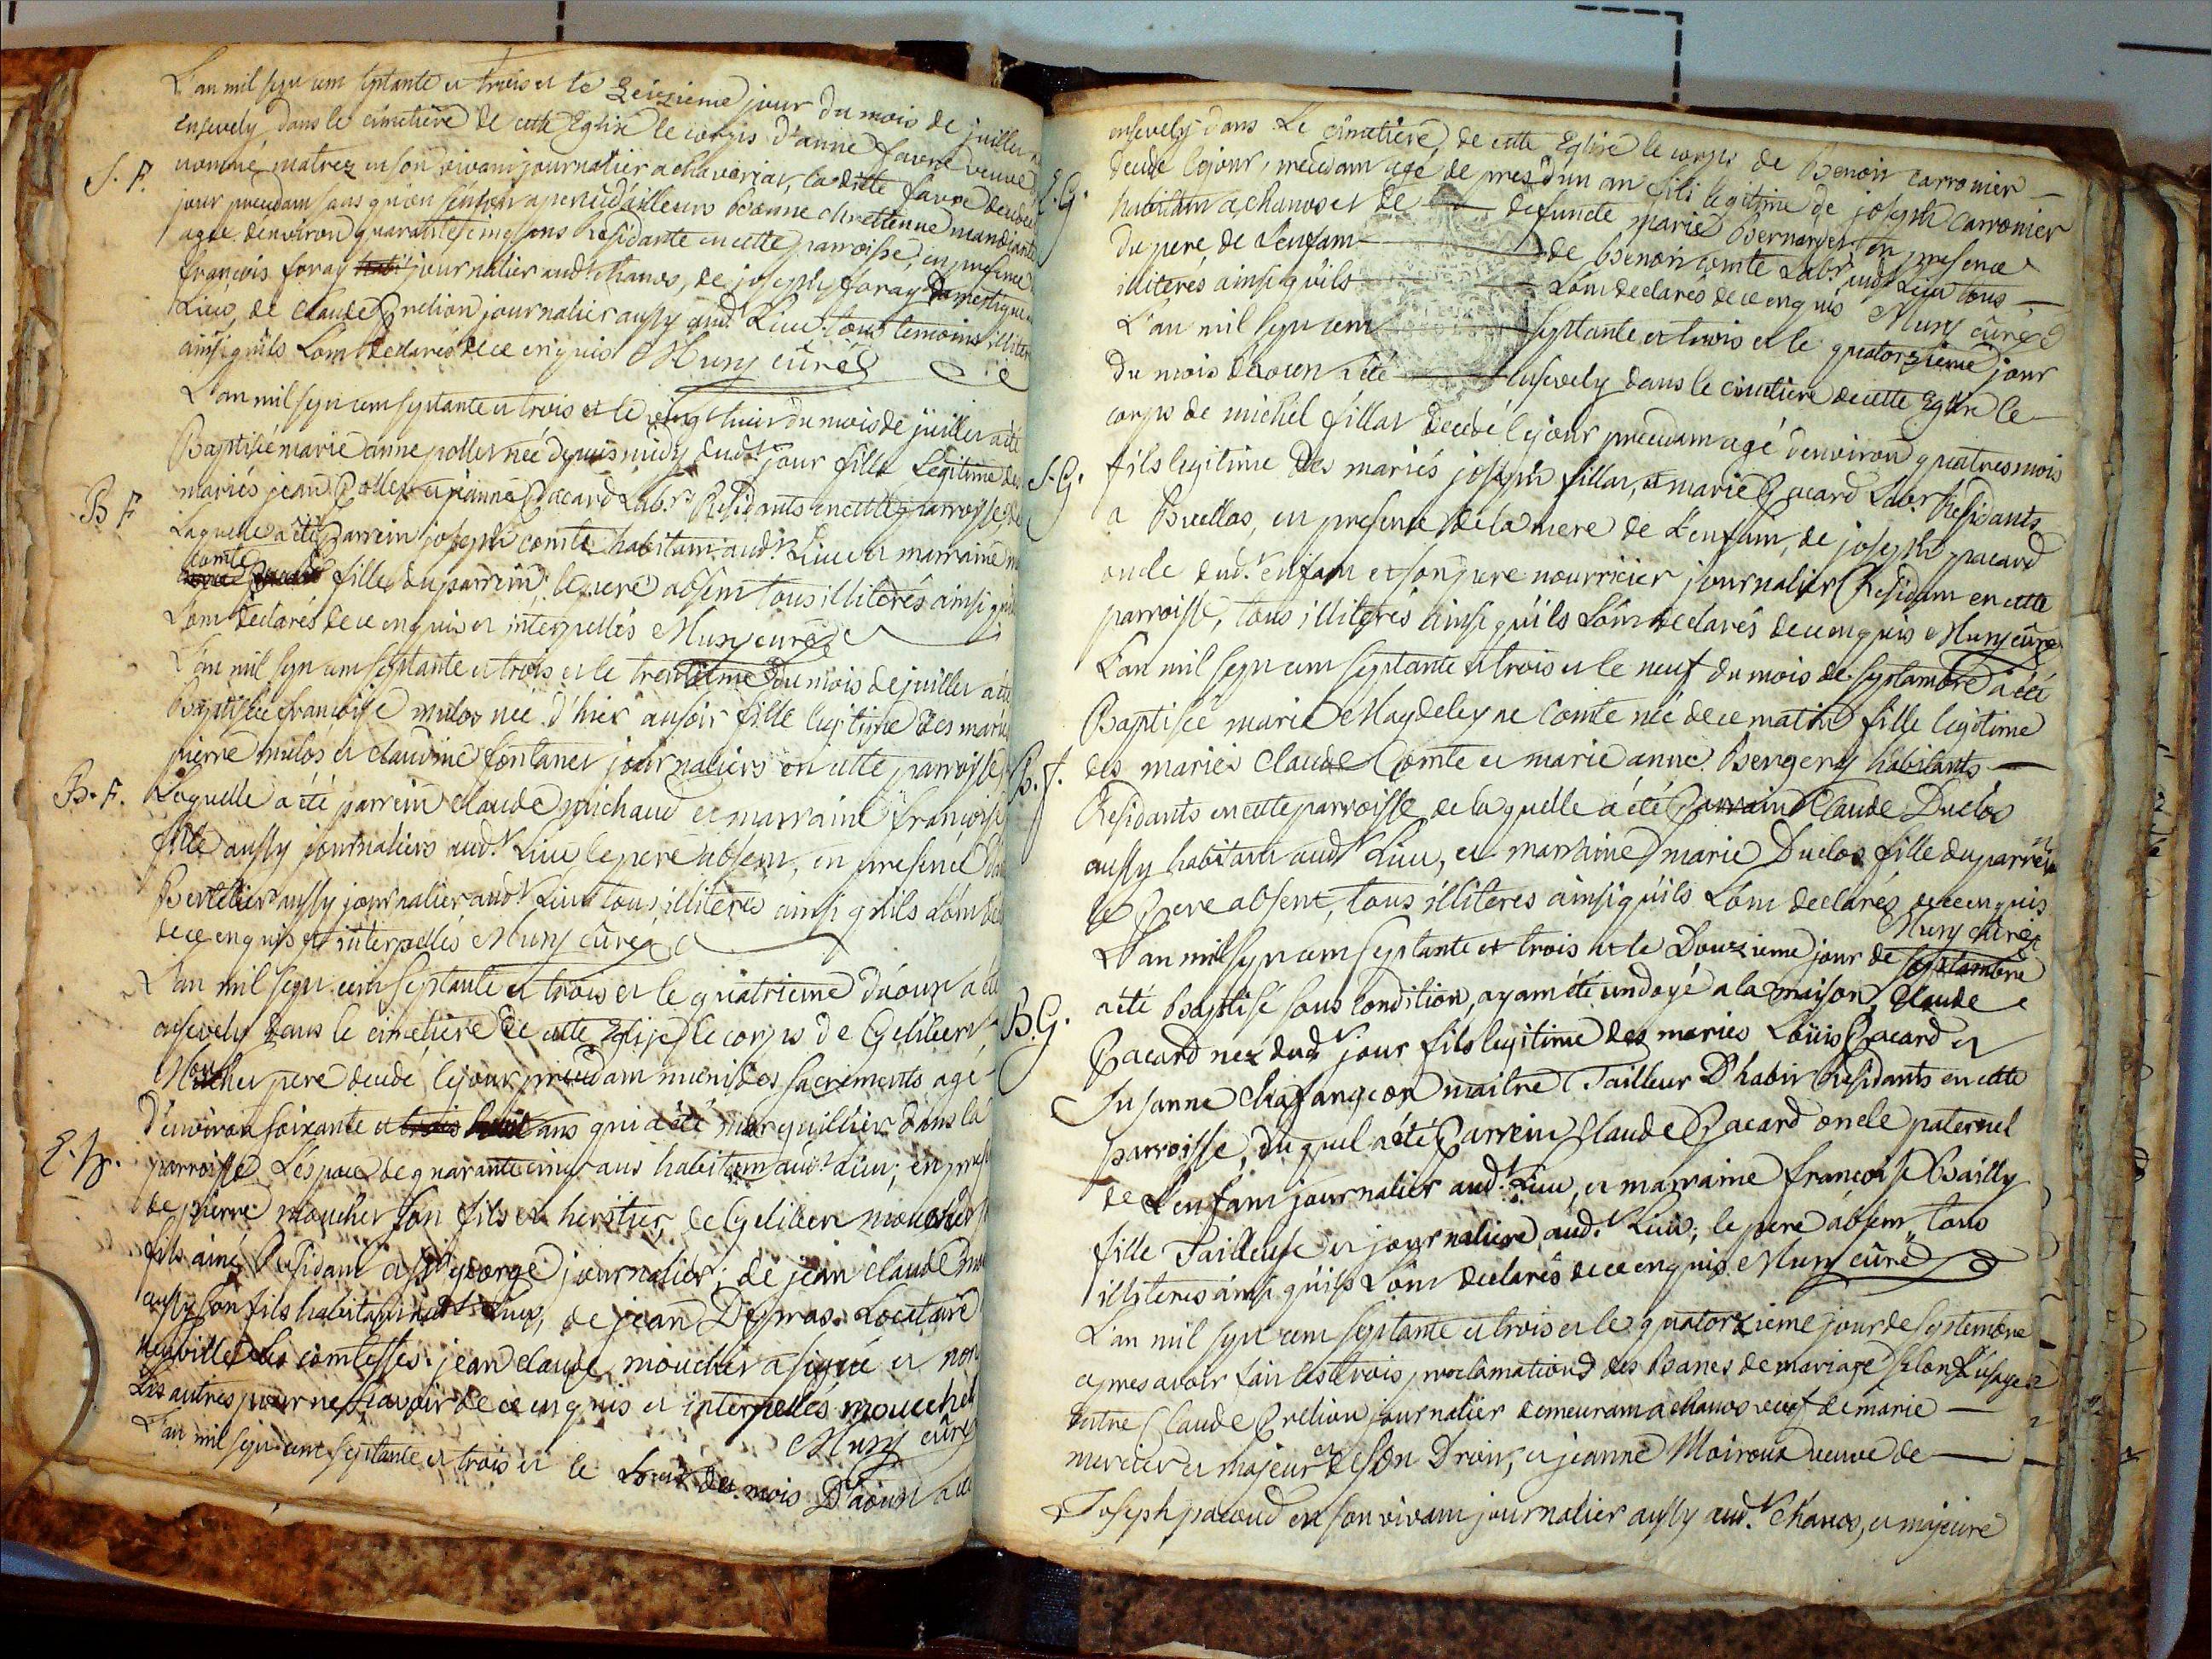 L'an mil sept cent septante et trois et le seizieme jour du mois de juillet
ensevely dans le cimetiere de cette Eglise le corps d'anne favre veuve
S. F.
nommé matrez en son vivant journalier a chavariat, la ditte favre decedee
jour precedam sans qu'on bonne chrettienne mandiante
agee d'environ quarante cinq ans Residante en cette parroisse, en presence
françois foray journalier aud chanos, de joseph foray domestique
Lieu, de claude Prelion journalier aussy aud.t Lieu tous temoins illiter
ainsi qu'ils L'ont declarés de ce enquis Muny curé
L'an mil sept cent septante et trois et le vingt huit du mois de juillet a été
Baptisée marie anne pollet née depuis midy dud.t jour fille Legitime des
B F
mariés jean Pollet et jeanne Pacard Lab.rs Residants en cette parroisse de
Laquelle a été Parrein joseph comte habitant aud.t Lieu et marraine
comte
fille du parrein; le pere absent tous illiterés ainsi qu'ils
L'ont declarés de ce enquis et interpellés Muny curé
L'an mil sept cent septante et trois et le trentieme du mois de juillet a été
Baptisée françoise mulos née d'hier au soir fille legitime des mariés
pierre mulos et claudine fontanet journaliers en cette parroisse
B. F.
Laquelle a été parrein claude michaud et marraine françoise
fille aussy journaliers aud.t Lieu le pere absent, en presence
Bertelier aussy journalier aud.t Lieu tous illiterés ainsi qu'ils L'ont
de ce enquis et interpellés Muny curé
L'an mil sept cent septante et trois et le quatrieme d'aoust a été
ensevely dans le cimetiere de cette Eglise le corps de Gelibert
Mouchet pere decedé le jour precedam muni des sacrements agé
d'environ soixante et trois huit ans qui a été marguillier dans la
E. h.
parroisse L'espace de quarante cinq ans habitant aud.t Lieu; en
de pierre mouchet son fils et heritier, de Gelibert mouchet
fils ainé Residant a st george journalier; de jean claude
aussy son fils habitant aud.t Lieu, de jean Dupras Locataire
neuville les comtesses. jean claude mouchet a signé et non
Les autres pour ne sçavoir de ce enquis et interpellés mouchet
Muny curé
L'an mil sept cent septante et trois et le treize du mois D'aoust a été
ensevely dans Le cimetiere de cette Eglise le corps de Benoit carronier
S. G.
decedé le jour precedam agé de pres d'un an fils legitime de joseph carronier
habitant a chanos et de defuncte marie Bernardet en presence
du pere de l'enfant de benoit comte Lab.r aud.t Lieu tous
illiterés ainsi qu'ils L'ont declarés de ce enquis Muny curé
L'an mil sept cent septante et trois et le quatorzieme jour
du mois d'aoust a été ensevely dans le cimetiere de cette Eglise le
corps de michel fillat decedé le jour precedam agé d'environ quatres mois
S. G.
fils legitime Des mariés joseph fillat, et marie Pacard Lab.r Residants
a Buellas, en presence de la mere de l'enfant, de joseph pacard
oncle dud.t enfant et son pere nourricier journalier Residant en cette
parroisse, tous illiterés ainsi qu'ils L'ont declarés de ce enquis Muny curé
L'an mil sept cent septante et trois et le neuf du mois de septambre a été
Baptisée marie Magdeleyne Comte née de ce matin fille legitime
B. f.
des mariés Claude Comte et marie anne Bergery habitants
Residants en cette parroisse de laquelle a été Parrain Claude Duclos
aussy habitant aud.t Lieu, et marraine marie Duclos fille du parrein
le Pere absent, tous illiteres ainsi qu'ils L'ont declarés de ce enquis
Muny curé
L'an mil sept cent septante et trois et le Douzieme jour de septambre
B. G.
a été Baptisé sous condition, ayant été undoyé a la maison, Claude
Pacard nez dud.t jour fils legitime des mariés Loüis Pacard et
Susanne Chafangeon maitre Tailleur D'habit Residants en cette
parroisse, duquel a été Parrein Claude Pacard oncle paternel
de l'enfant journalier aud.t Lieu, et marraine françoise Bailly
fille Tailleuse et journaliere aud.t Lieu; le pere absent, tous
illiteres ainsi qu'ils L'ont declarés de ce enquis Muny curé
L'an mil sept cent septante et trois et le quatorzieme jour de septembre
apres avoir fait les trois proclamations des Bancs de mariage selon L'usage
Entre Claude Prelion journalier demeurant a chanos veuf de marie
mercier et majeur et de son Droit, et jeanne Moiroux veuve de
Joseph pacoud en son vivant journalier aussy aud.t Chanos, et majeure